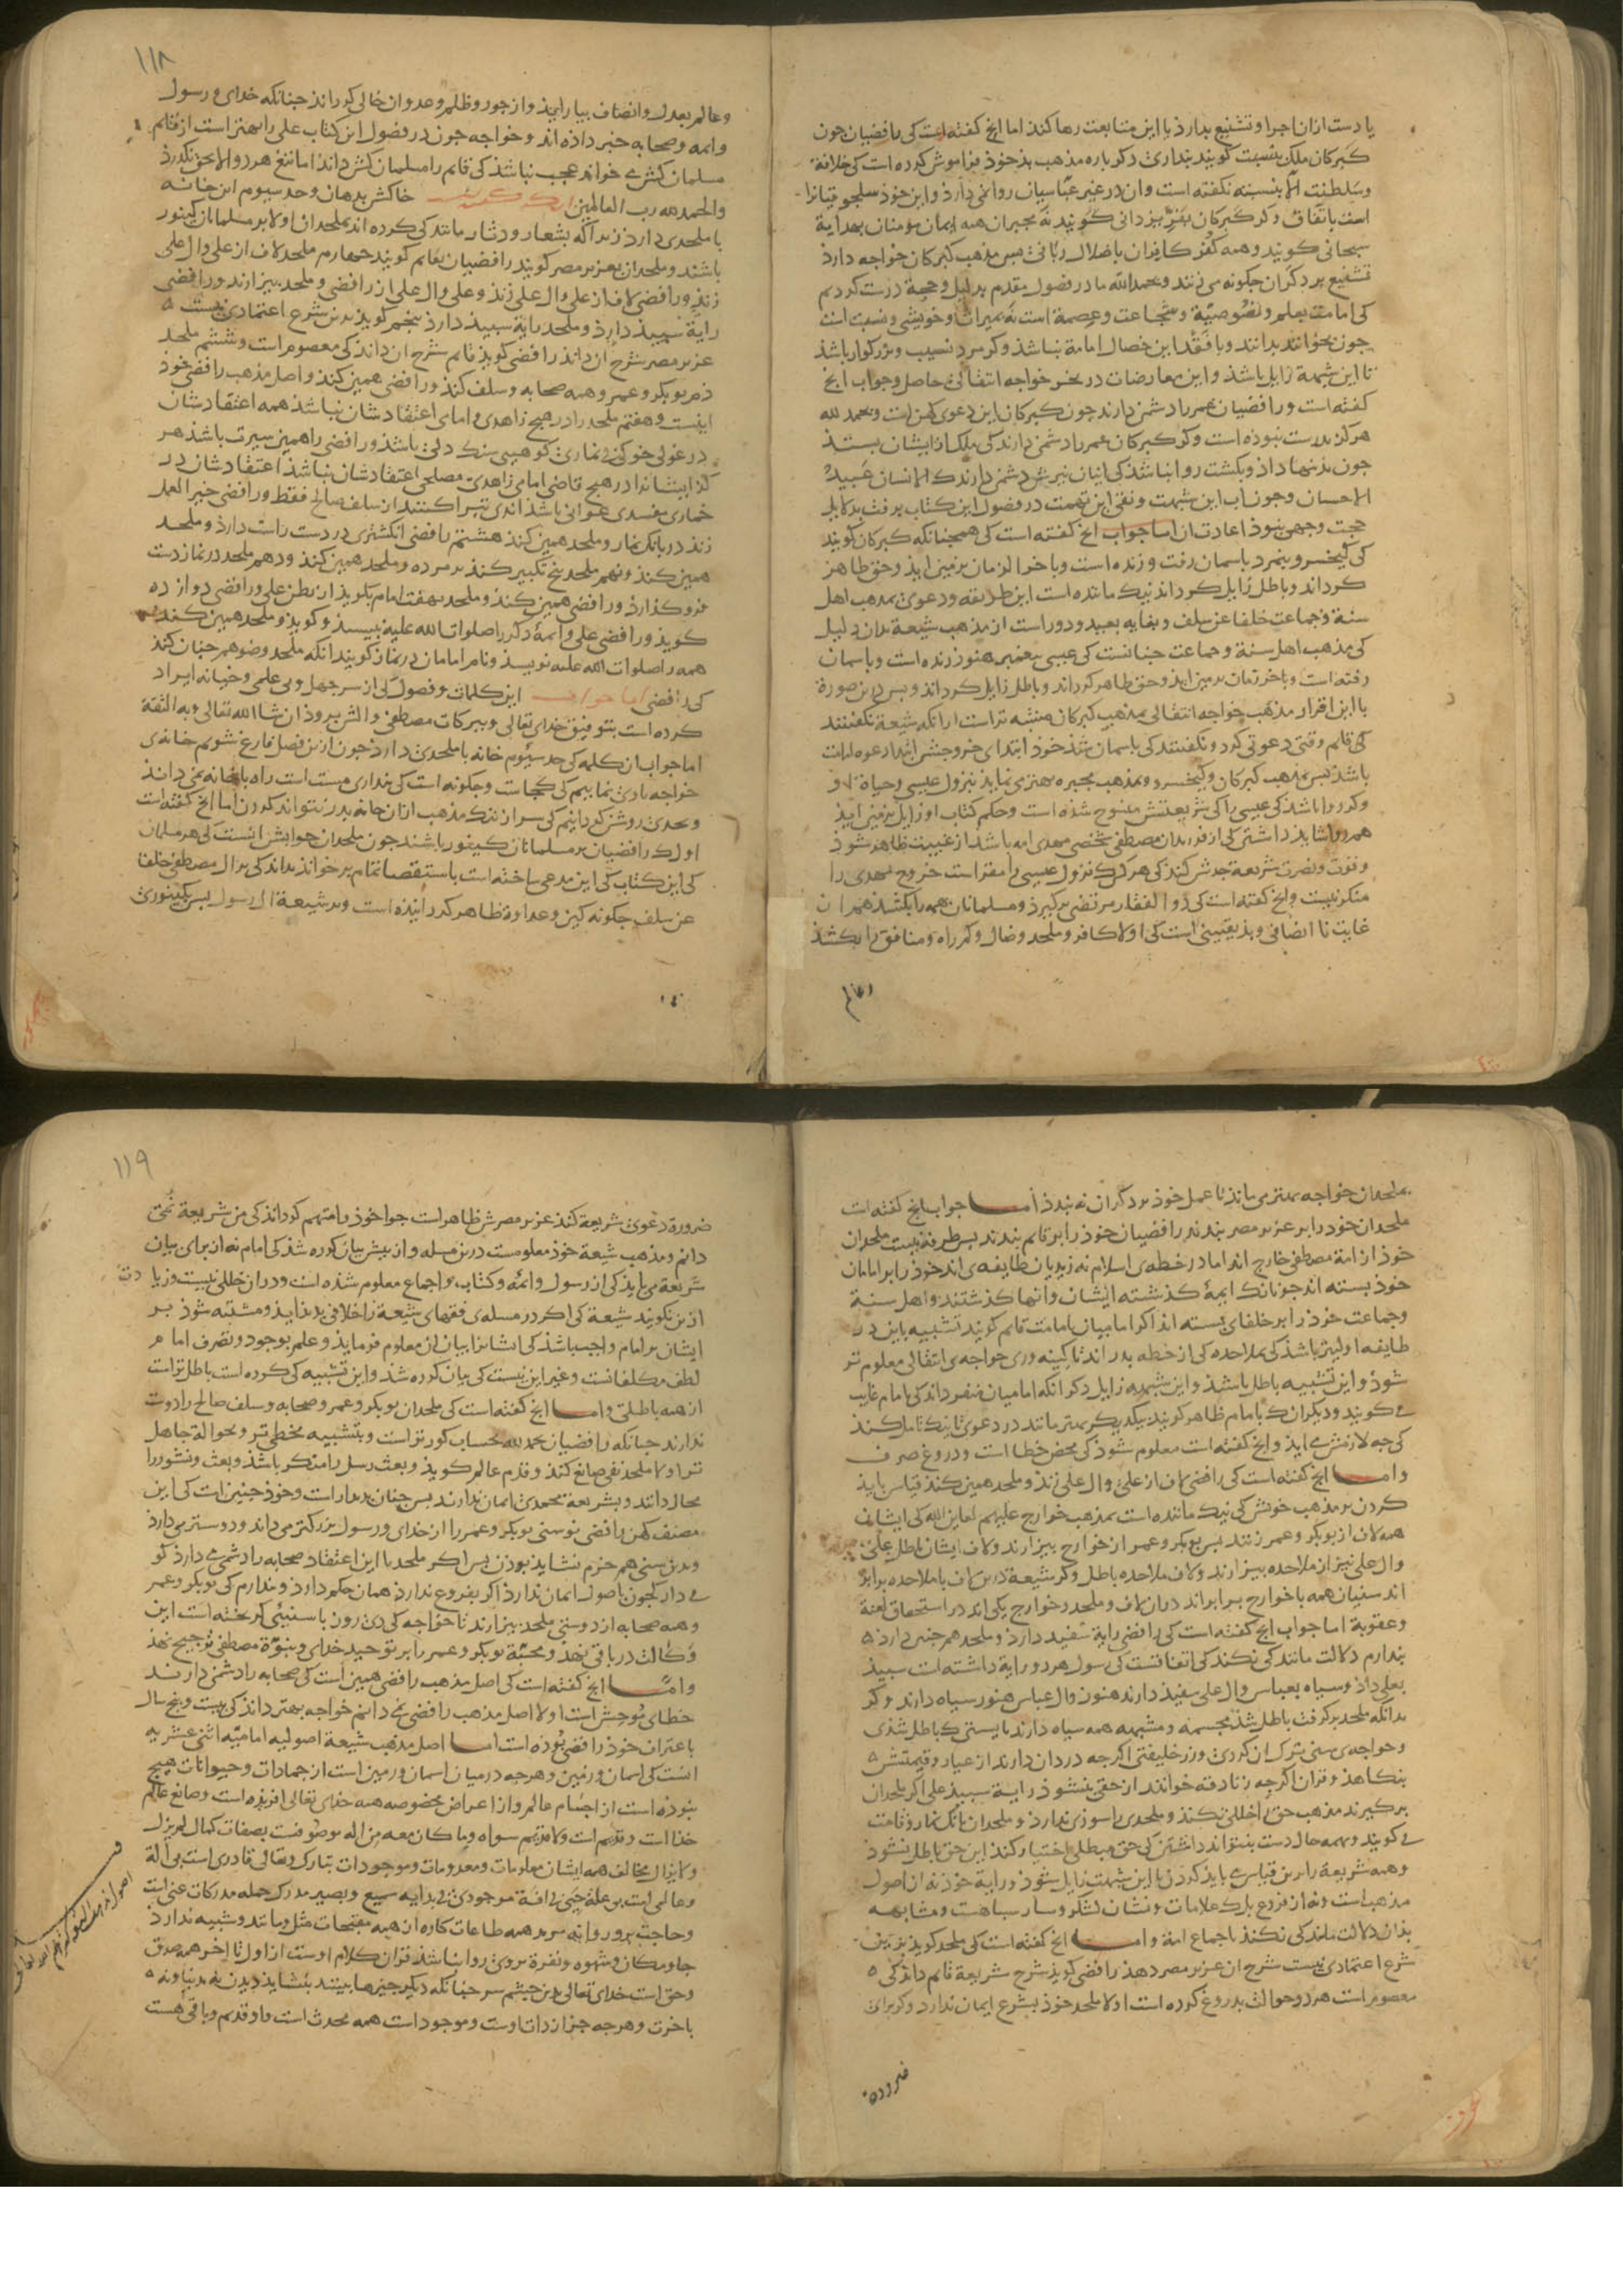 یا دست ازان اجرا و تشنیع بدارذ یا این متابعت رها کنذ اما انج کفته است کی رافضیان جون
کبرکان ملک بنسبت کویند بنداری دکر باره مذهب بذ خوذ فراموش کرده است کی خلافة
وسلطنت الا بنسبت نکفته است وان در غیر عباسیان روا نمی دارذ واین خوذ سلجوقیانرا
است باتفاق وکر کبرکان بفر یزدانی کویند نه مجبران همه ایمان مؤمنان بهدایة
سبحانی کویند وهمه کفر کافران باضلال ربانی بس مذهب کبرکان خواجه دارذ
تشنیع بر دکران جکونه می زند وبحمدالله ما در فصول مقدم بدلیل وحجة درست کردیم
کی امامت بعلم ونصوصیة وشجاعت وعصمة است نه بمیراث وخویشی ونسبت است
جون بخوانند بدانند وبا فقد این خصال امامة نباشذ وکر مرد نسیب وبزرکوار باشذ
تا این شبهة زایل باشذ واین معارضات در نحر خواجه انتقالی حاصل وجواب انج
کفته است ورافضیان عمر را دشمن دارند جون کبرکان این دعوی کهن است وبحمد لله
هرکز بدرست نبوذه است وکر کبرکان عمر را دشمن دارند کی ملک از ایشان بستذ
جون بذینها داذ وبکشت روا نباشذ کی اینان نیرش دشمن دارند که الانسان عبید
الاحسان وجون اب این شبهت ونفی این تهمت در فصول این کتاب برفت بدلایل
حجت وجهی نبوذ اعادت ان اما جواب انج کفته است کی همجنانکه کبرکان کویند
کی کیخسرو بنمرد باسمان رفت وزنده است وباخر الزمان بزمین ایذ وحق ظاهر
کرداند وباطل زایل کرداند نیک مانده است این طریقه ودعوی بمذهب اهل
سنة وجماعت خلفا عن سلف وبغایه بعید ودور است از مذهب شیعة بدان دلیل
کی مذهب اهل سنة وجماعت جنانست کی عیسی بیغمبر هنوز زنده است وباسمان
رفته است وباخر زمان بزمین ایذ وحق ظاهر کرداند وباطل زایل کرداند وبس درین صورة
با این اقرار مذهب خواجه انتقالی بمذهب کبرکان مشبه تر است از انکه شیعة نکفتند
کی قایم وقتی دعوتی کرد ونکفتند کی باسمان شذ خوذ ابتدای خروجش ابتدا دعوه امامت
باشذ بس بمذهب کبرکان وکیخسرو ومذهب مجبره بهتر می نمایذ نزول عیسی وحیاة او
وکر روا باشذ کی عیسی را کی شریعتش منسوخ شذه است وحکم کتاب او زایل بزمین ایذ
هم روا شاید داشتن کی از فرزندان مصطفی شخصی مهدی امه باشذ از غیبت ظاهر شوذ
وقوت ونصرت شریعة جدش کند کی هرک بنزول عیسی را مقر است خروج مهدی را
منکر نیست وانج کفته است کی ذو الفقار مرتضی برکیرذ ومسلمانان همه را بکشذ هم از ان
غایت نا انصافی وبذ یقینی است کی اولا کافر وملحد وضال وکمراه ومنافق را بکشذ
وعالم
۱۱۸
وعالم بعدل وانصاف بیارایذ واز جور وظلم وعدوان خالی کرداند جنانکه خدای ورسول
وائمه وصحابه خبر داذه اند وخواجه جون در فصول این کتاب علی را بهتر است از قایم
مسلمان کش می خواند عجب نباشذ کی قایم را مسلمان کش داند اما تیغ هر دو الا بحق نکذرذ
والحمد لله رب العالمین خاکش بدهان وحد سیوم این خانه
با ملحدی دارذ زیرا که بشعار ودثار مانند کی کرده اند بملحدان اولا بر مسلمانان کینور
باشند وملحدان بعزیز مصر کویند رافضیان بقایم کویند جهارم ملحد لاف از علی وال علی
زند ورافضی لاف از علی وال علی زند وعلی وال علی از رافضی وملحد بیزارند ورافضی
رایة سپیذ دارذ وملحد رایة سپیذ دارذ بنجم کویذ بدین شرع اعتمادی نیست
عزیز مصر شرح ان داند رافضی کویذ قایم شرح ان داند کی معصوم است وششم ملحد
ذم بوبکر وعمر وهمه صحابه وسلف کند ورافضی همین کند واصل مذهب رافضی خوذ
اینست وهفتم ملحد را در هیچ زاهدی وامامی اعتقادشان نباشذ همه اعتقادشان
در غولی خوکی بی نمازی کوهیی سنک دلی باشذ ورافضی را همین سیرت باشذ هر
کز ایشانرا در هیچ قاضی امامی زاهدی مصلحی اعتقادشان نباشذ اعتقادشان در
خماری مفسدی عوانی باشذ اندی تبرا کنند از سلف صالح فقط ورافضی خیر العمل
زند در بانک نماز وملحد همین کند هشتم رافضی انکشتری در دست راست دارذ وملحد
همین کند ونهم ملحد پنج تکبیر کند بر مرده وملحد همین کند ودهم ملحد در نماز دست
فرو کذارذ ورافضی همین کند وملحد بهفت امام بکویذ از بطن علی ورافضی دوازده
کویذ ورافضی علی وائمۀ دکر را صلوات الله علیه نبیسذ وکویذ وملحد همین کند
همه را صلوات الله علیه نویسذ ونام امامان در نماز کویند انکه ملحد وضو هم جنان کند
کی رافضی اما جواب این کلمات وفصول کی از سر جهل وبی علمی وخیانه ایراد
کرده است بتوفیق خدای تعالی وببرکات مصطفی والش بروذ ان شا الله تعالی وبه الثقة
اما جواب ان کلمه کی حد سیوم خانه با ملحدی دارذ جون ازین فصل فارغ شویم خانه‌ی
خواجه بازی نماییم کی کجاست وجکونه است کی بنداری مست است راه باخانه نمی داند
وبحدی روشن کردانیم کی سر از ننک مذهب ازان خانه بدر نتواند کردن اما انج کفته است
اول که رافضیان بر مسلمانان کینور باشند جون ملحدان جوابش انست کی هر مسلمان
کی این کتاب کی این مدعی ساخته است باستقصا تمام برخواند بداند کی بر ال مصطفی خلفا
عن سلف جکونه کین وعداوة ظاهر کردانیذه است وبر شیعة ال رسول بس کینوری
بملحدان خواجه بهتر می ماند تا عمل خوذ بر دکران نه بندذ اما جواب انج کفته است
ملحدان خوذ را بر عزیز مصر بندند رافضیان خوذ را بر قایم بندند بس طرفه نیست ملحدان
خوذ از امة مصطفی خارج اند اما در خطه‌ی اسلام نه زیدیان طایفه‌ی اند خوذ را بر امامان
خوذ بسته اند جونانک ایمۀ کذشته ایشان وانها کذشتند واهل سنة
وجماعت خوذ را بر خلفای بسته اند اکر امامیان بامامت قایم کویند تشبیه باین دو
طایفه اولیتر باشذ کی بملاحده کی از خطه بدر اند تا کینه وری خواجه‌ی انتقالی معلوم تر
شوذ واین تشبیه باطل باشذ واین شبهه زایل دکر انکه امامیان منفرداند کی بامام غایب
می کویند ودیکران که بامام ظاهر کویند بیکدیکر بهتر مانند در دعوی تا نیک تامل کند
کی جه لازمش می ایذ وانج کفته است معلوم شوذ کی محض خطا است ودروغ صرف
واما انج کفته است کی رافضی لاف از علی وال علی زند وملحد همین کند قیاس بایذ
کردن بر مذهب خوش کی نیک مانده است بمذهب خوارج علیهم لعاین الله کی ایشان
همه لاف از بوبکر وعمر زنند بس بوبکر وعمر از خوارج بیزارند ولاف ایشان باطل علی
وال علی نیز از ملاحده بیزارند ولاف ملاحده باطل وکر شیعة درین لاف با ملاحده برابر
اند سنیان همه با خوارج برابراند دران لاف وملحد وخوارج یکی اند در استحقاق لعنة
وعقوبة اما جواب انج کفته است کی رافضی رایة سفید دارذ وملحد هم جنین دارذ
بندارم دلالت مانند کی نکند کی اتفاقست کی رسول هر دو رایة داشته است سپیذ
بعلی داذ وسیاه بعباس وال علی سفیذ دارند هنوز وال عباس هنوز سیاه دارند وکر
بدانکه ملحد برکرفت باطل شذ مجسمه ومشبهه همه سیاه دارند بایستی که باطل شذی
وخواجه‌ی سنی بترک ان کردی وزر خلیفتی اکر جه دزدان دارند از عیار وقیمتش
بنکاهذ وقران اکر چه زنادقه خوانند از حقی بنشوذ رایة سپیذ علی اکر ملحدان
برکیرند مذهب حق را خللی نکند وملحدی را سوزی ندارذ وملحدان بانک نماز وقامت
می کویند وبهمه حال دست بنتواند داشتن کی حق مبطلی اختیار کند این حق باطل نشوذ
وهمه شریعة را برین قیاس می بایذ کردن تا این شبهت زایل شوذ ورایة خوذ نه از اصول
مذهب است ونه از فروع بلک علامات ونشان لشکر وسا رسباهت ومشابهه
بذان دلالت مانند کی نکند باجماع امة واما انج کفته است کی ملحد کویذ بزین
شرع اعتمادی نیست شرح ان عزیز مصر دهذ رافضی کویذ شرح شریعة قایم داند کی
معصوم است هر دو حوالت بدروغ کرده است اولا ملحد خوذ بشرع ایمان ندارد وکر برای
ضرورة
۱۱۹
ضرورة دعوی شریعة کند عزیز مصرش ظاهر است جرا خوذ را متهم کرداند کی من شریعة نمی
دانم ومذهب شیعة خوذ معلومست درین مسله واز پیش بیان کرده شذ کی امام نه از برای بیان
شریعة می بایذ کی از رسول وائمه وکتاب واجماع معلوم شذه است ودران خللی نیست وزیادت
ازین نکویند شیعة کی اکر در مسله‌ی فقهای شیعة را خلافی بدیذ ایذ ومشتبه شوذ بر
ایشان بر امام واجب باشذ کی انشانرا بیان ان معلوم فرمایذ وعلم بوجود وتصرف امام
لطف مکلفانست وغیر این نیست کی بیان کرده شد واین تشبیه کی کرده است باطل تر است
از همه باطلی واما انج کفته است کی ملحدان بوبکر وعمر وصحابه وسلف صالح را دوست
ندارند جنانکه رافضیان بحمد لله بحساب کورتر است وبتشبیه مخطی تر وبحوالة جاهل
تر اولا ملحد نفی صانع کند وقدم عالم کویذ وبعث رسل را منکر باشذ وبعث ونشور را
محال داند وبشریعة محمدی ایمان ندارند بس جنان بدیدار است وخوذ جنین است کی این
مصنف کهن رافضی نو سنی بوبکر وعمر را از خدای ورسول بزرکتر می داند ودوستر می دارذ
وبدین سنی هم خرم نشاید بوذن بس اکر ملحد با این اعتقاد صحابه را دشمن می دارذ کو
می دار کجون باصول ایمان ندارذ اکر بفروع ندارذ همان حکم دارذ وبندارم کی بوبکر وعمر
وهمه صحابه از دوستی ملحد بیزارند تا خواجه کی دی روز با سنیئی کریخته است این
وکالت در باقی نهذ ومحبة بوبکر وعمر را بر توحید خدای ونبوة مصطفی ترجیح نهذ
واما انج کفته است کی اصل مذهب رافضی همین است کی صحابه را دشمن دارند
خطای موحش است اولا اصل مذهب رافضی نمی دانم خواجه بهتر داند کی بیست وبنج سال
باعتراف خوذ رافضی بوذه است اما اصل مذهب شیعة اصولیه امامیه اثنی عشریه
انست کی اسمان وزمین وهرجه در میان اسمان وزمین است از جمادات وحیوانات هیچ
نبوذه است از اجسام عالم واز اعراض مخصوصه همه خدای تعالی افریذه است وصانع عالم
خدا است وقدیم است ولا قدیم سواه وما کان معه من اله موصوفست بصفات کمال لم یزل
ولا یزال مخالف همه ایشان معلومات ومعدومات وموجودات تبارک وتعالی قادری است بی آلة
وعالمی است بی علة حیی بی آفة موجودی بی بدایه سمیع وبصیر مدرک جمله مدرکات غنی است
وحاجت برو روا نه مرید همه طاعات کاره از همه مقبحات مثل ومانند وشبیه ندارذ
جا ومکان وشهوه ونفرة بروی روا نباشذ قران کلام اوست از اول تا اخر همه صدق
وحق است خدای تعالی بدین جشم سر جنانکه دیکر جیزها بینند بنشایذ دیدن نه بدنیا ونه
باخرت وهرجه جز از ذات اوست وموجود است همه محدث است واو قدیم وباقی است